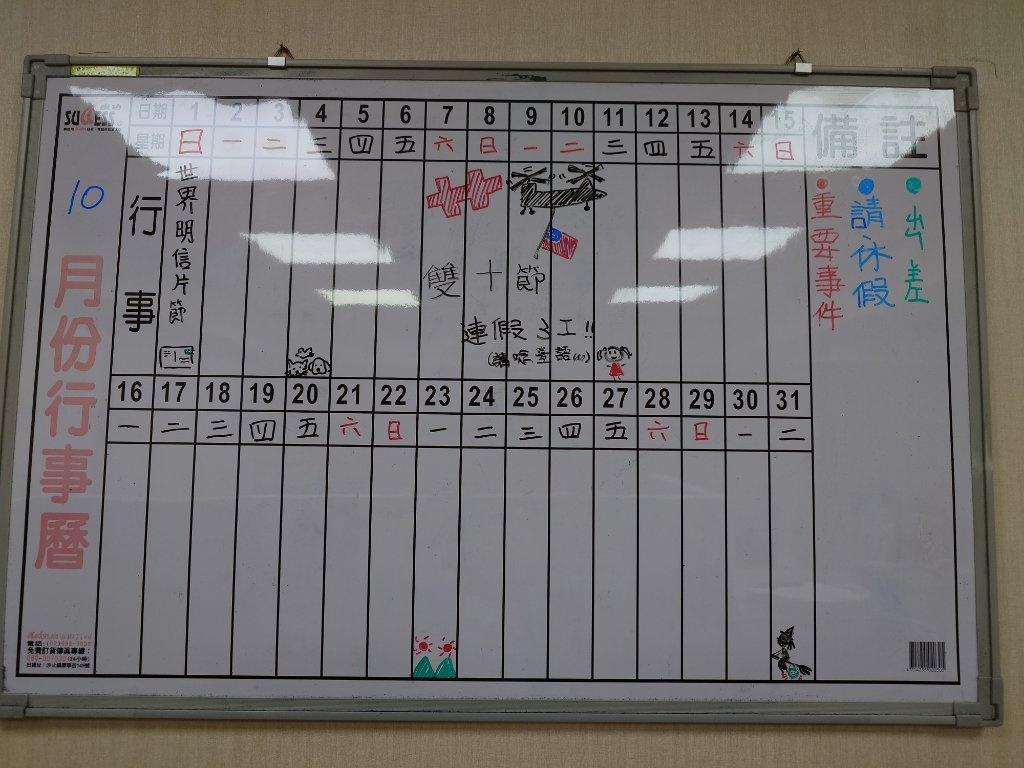 SUCCESS
日期 1 2 3 4 5 6 7 8 9 10 11 12 13 14 15
星期 日 一 二 三 四 五 六 日 一 二 三 四 五 六 日
備註
10
月份行事曆
行事
世界明信片節
雙十節
連假3工!!
重要事件
請休假
出差
16 17 18 19 20 21 22 23 24 25 26 27 28 29 30 31
一 二 三 四 五 六 日 一 二 三 四 五 六 日 一 二
免費訂貨傳真專線: